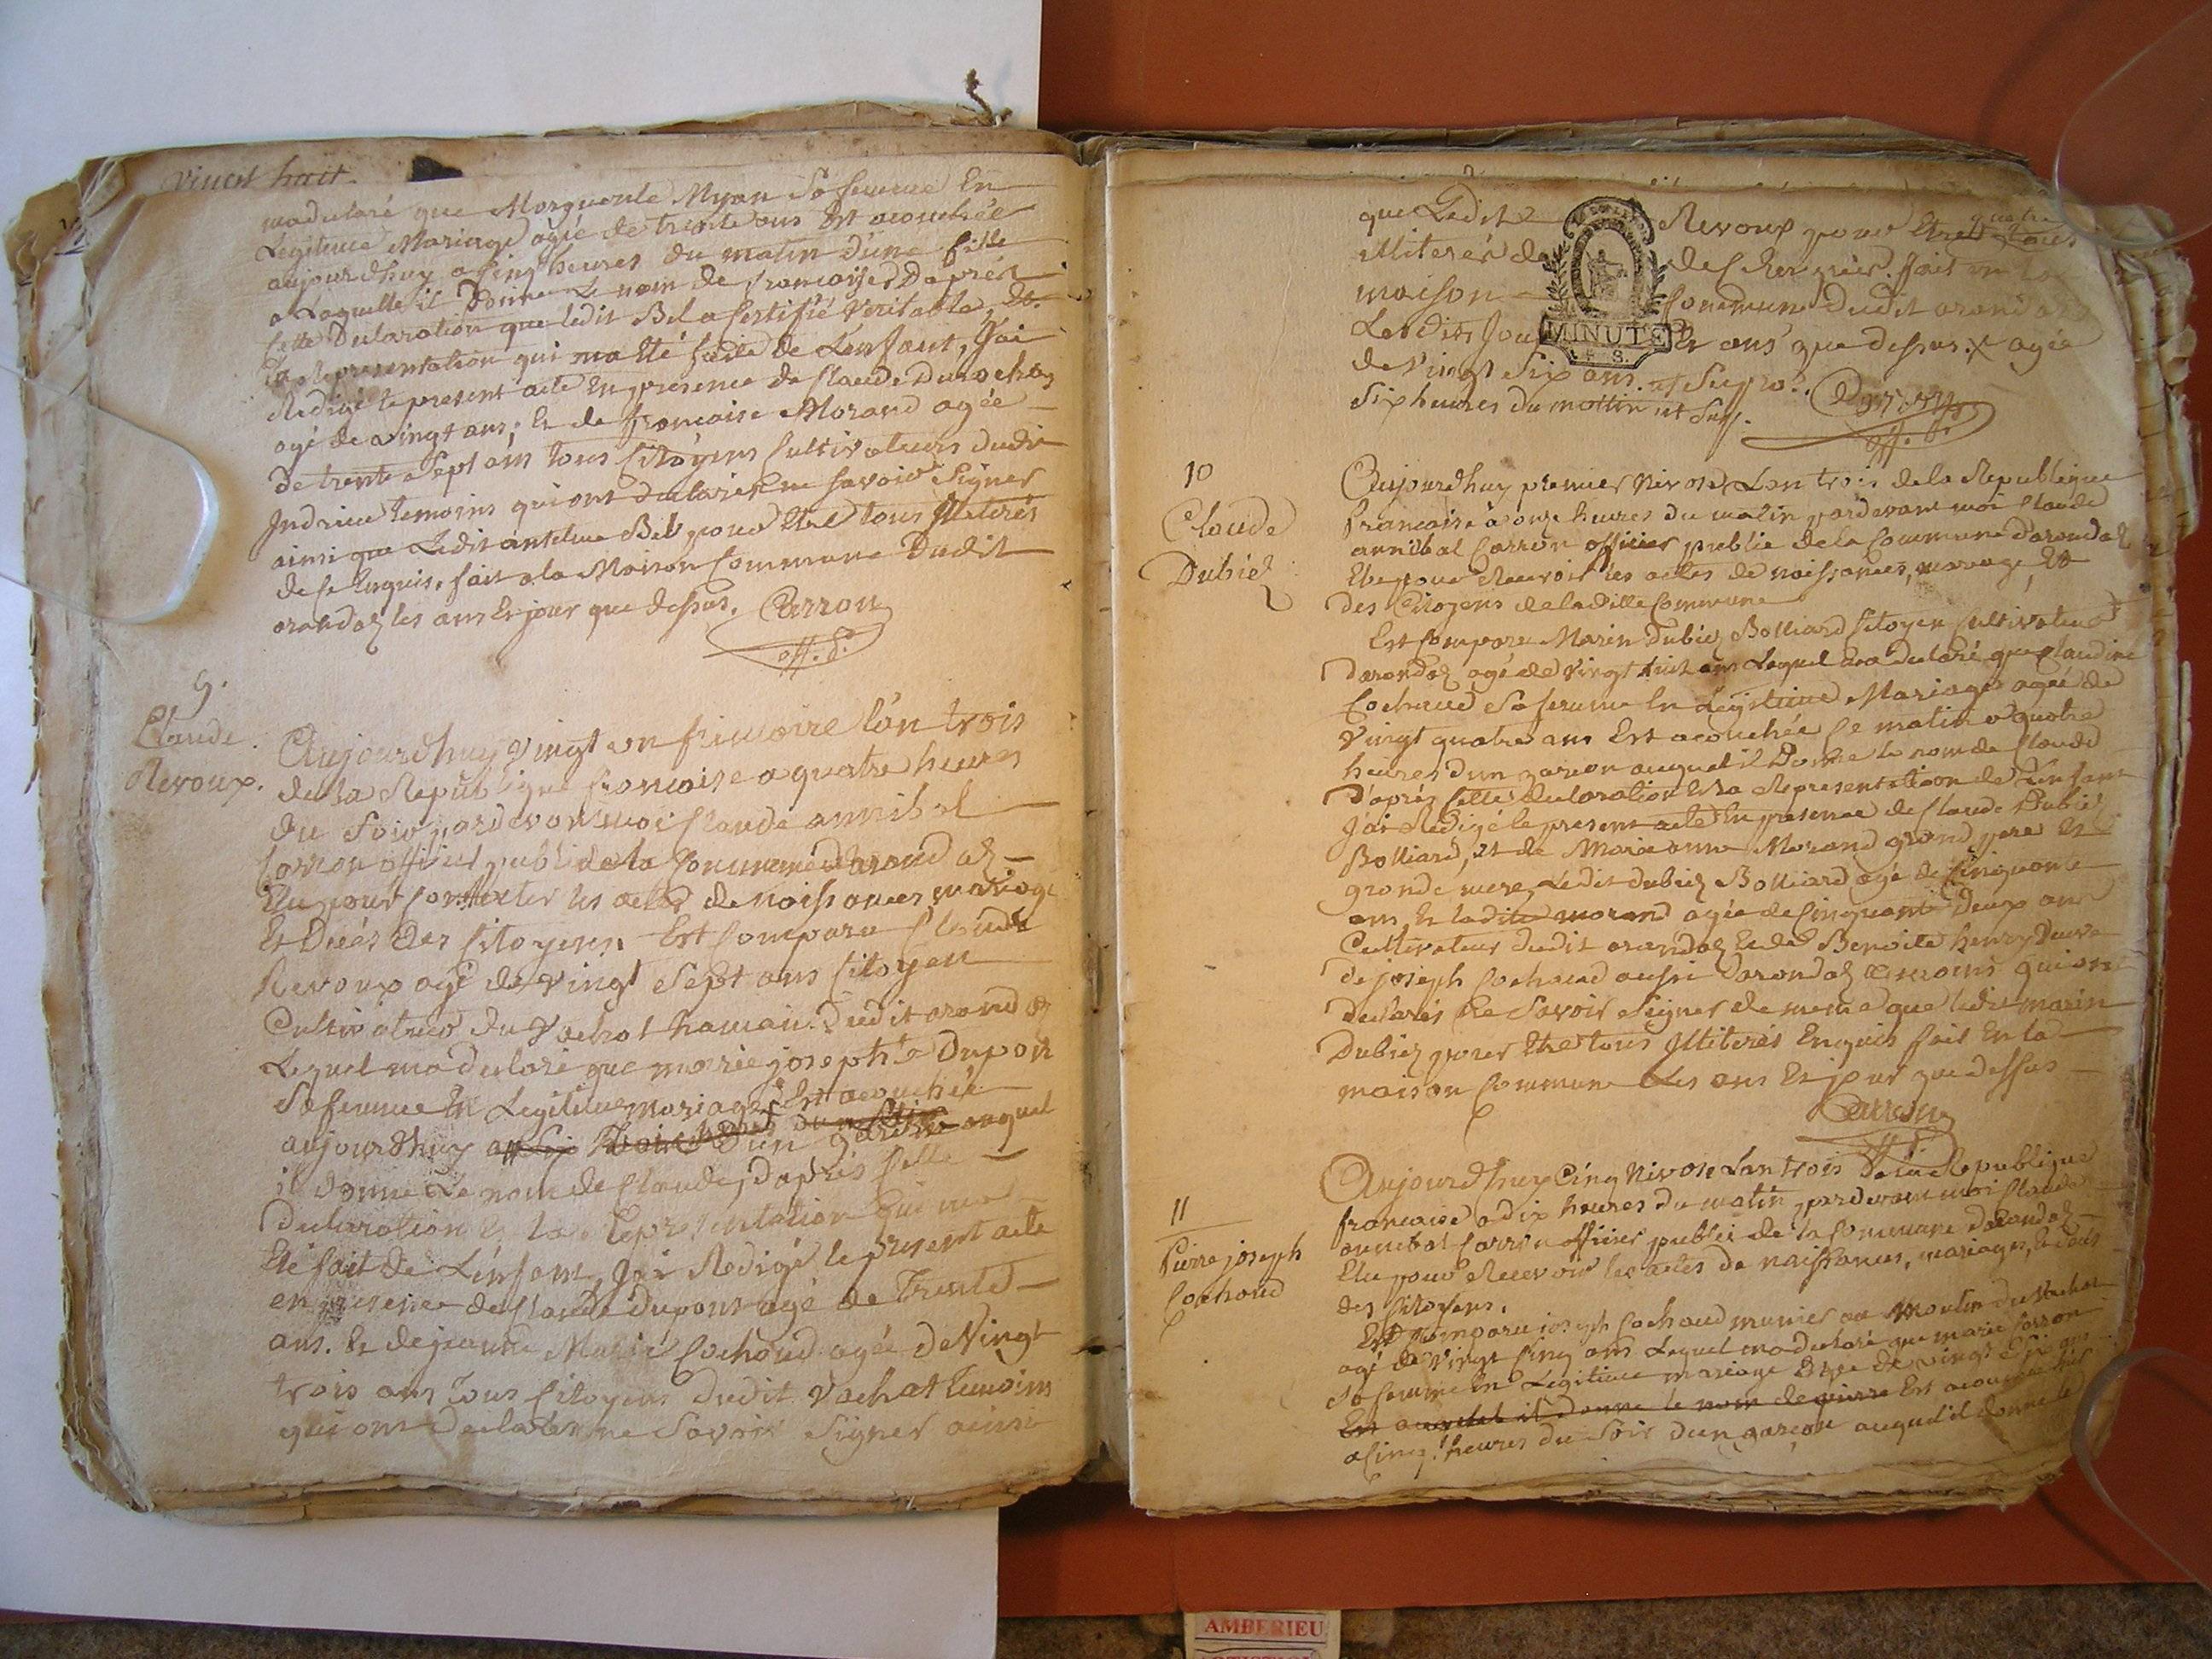 vingt huit
madeclaré que Morguerite Myan Sa femme En
Legitime Mariage agée de trente ans Est acouchée
aujourdhuy a Cinq heures du matin d'une fille
a Laquelle il Donne Le nom de francoise, Daprés
Cette Declaration que ledit Bel a Certifié Veritable, Et
La Representation qui ma Eté faite de Lenfant, J'ai
Redigé le present acte En presence de Claude Durochaz
agé de vingt ans, Et de francoise Morand agée
de trente Sept ans tous Citoyens Cultivateurs dudit
Indrieu temoins qui ont declaré ne savoir Signer
ainsi que Ledit antelme Bel pour Etre tous Illiterés
de ce Enquis. fait a la Maison Commune Dudit
arandaz les ans Et jour que dessus. Carron
off. P.
9.
Claude
Revoux.
Aujourdhuy vingt un frimaire l'an trois
de la Republique francoise a quatre heures
du Soir pardevant moi Claude annibal
Carron officier public de la Commune d'arandaz
Elu pour Constater les actes de naissances mariage
Et Décés Des Citoyens. Est Comparu Claude
Revoux agé de vingt Sept ans Citoyen
Cultivateur du Vachat hamau Dudit arandaz
Lequel madeclaré que marie josephte Dupont
Sa femme En Legitime mariage X Est acouchée
aujourdhuy a D'un garcon auquel
il donne Le nom de Claude, D'aprés Cette
Declaration Et la Representation qui ma
Eté fait de L'enfant, J'ai Redigé le present acte
en presence de Claude Dupont agé de Trente
ans. Et de jeanne Marie Cochoud agée de Vingt
trois ans Tous Citoyens dudit Vachat temoins
qui ont Declaré ne Savoir Signer ainsi
que Ledit Revoux pour Etre quatre
illiterés de de ce Enquis. fait en La
maison Commune Dudit arandaz
Les dits Jour Et ans que dessus. X agée
de Vingt Six ans
MINUTE
Six heures du mattin ut Sup. Carron
off. P.
10
Claude
Dubiez
Aujourdhuy premier Nivose Lan trois de la Republique
francaise a onze heures du matin pardevant moi Claude
annibal Carron officier public de la Commune d'arandaz
Elu pour Recevoir les actes de naissances, mariage, Et
des Citoyens de la ditte Commune
Est Comparu Marin Dubiez Bolliard Citoyen Cultivateur
Darandaz agé de vingt huit ans Lequel ma declaré que Claudine
Cochoud Sa femme En Legitime Mariage agée de
Vingt quatre ans Est acouchée Ce matin a quatre
heures d'un garcon auquel il Donne le nom de Claude
D'aprés Cette declaration Et la Representation de L'enfant
J'ai Redigé le present acte En presence de Claude Dubiez
Bolliard, et de Marianne Morand grand pere Et
grande mere, Ledit Dubiez Bolliard agé de Cinquante
ans Et ladite morand agée de Cinquante Deux ans
Cultivateur dudit arandaz Et de Benoite henry Veuve
de joseph Cochoud aussi Darandaz temoins qui ont
declarés Ne Savoir Signer de meme que ledit marin
Dubiez pour Etre tous Illiterés Enquis fait En la
maison Commune Les ans Et jour que dessus
Carron
off. P.
11
Pierre joseph
Cochoud
Aujourdhuy Cinq Nivose Lan trois De la Republique
francaise a dix heures du matin, pardevant moi Claude
annibal Carron officier public de la Commune darandaz
Elu pour Recevoir les actes de naissances, mariages, Et décés
des Citoyens.
Est Comparu joseph Cochoud munier au Moulin du Vachat
agé de Vingt Cinq ans Lequel ma declaré que marie Carron
Sa femme En Legitime mariage agée de vingt Six ans
Est auquel il donne le nom de pierre Est acouchée hier
a Cinq heures du Soir d'un garçon auquel il donne le
AMBERIEU